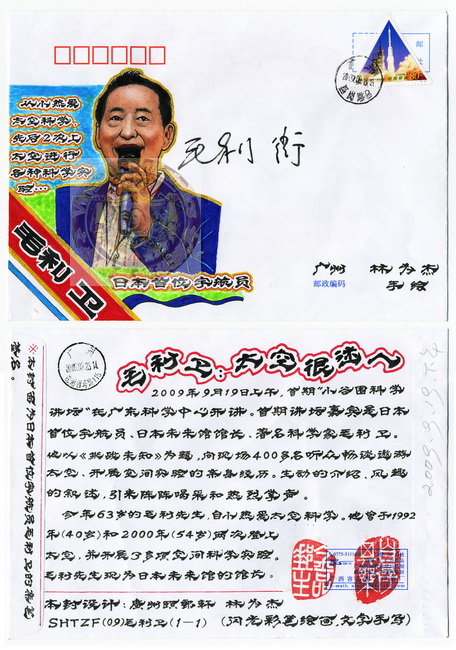 从小热爱
太空科学,
先后2次上
太空进行
各种科学实
验…
毛利 卫
日本首位宇航员
毛利 衛
广州 林为杰
手绘
邮政编码
80
毛利卫:太空很迷人
2009年9月19日上午,首期“小谷围科学
讲坛”在广东科学中心开讲。首期讲坛嘉宾是日本
首位宇航员、日本未来馆馆长、著名科学家毛利 卫。
他以《挑战未知》为题,向现场400多名听众畅谈遨游
太空、开展空间实验的亲身经历。生动的介绍、风趣
的叙述,引来阵阵喝采和热烈掌声。
今年63岁的毛利先生,自小热爱太空科学。他曾于1992
年(40岁)和2000年(54岁)两次登上
太空,并开展了多项空间科学实验。
毛利先生现为日本未来馆的馆长。
本封设计:广州颐郵轩 林为杰
SHTZF(09)毛利卫(1-1) (闪光彩笔绘画,文字手写)
※本封面为日本首位宇航员毛利 卫的亲笔
签名。
2009.9.19下午